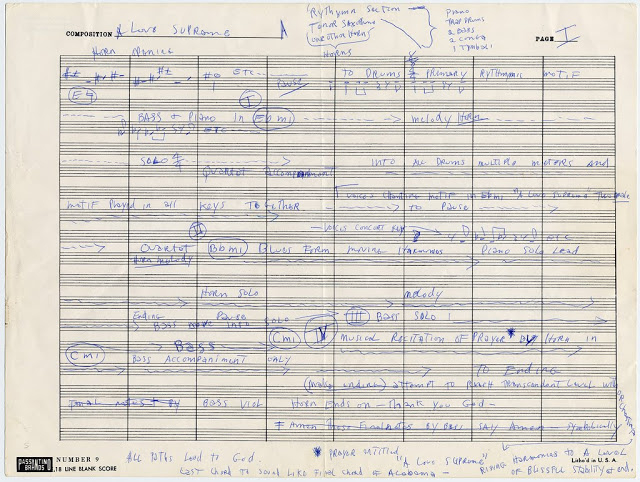 COMPOSITION A LOVE SUPREME
A
RYTHYMN SECTION
TENOR SAXOPHONE
ONE OTHER HORN
HORNS
PIANO
TRAP DRUMS
2 BASS
2 CONGA
1 TYMBALI
PAGE I
HORN
ETC
PAUSE
TO DRUMS PRIMARY RYTHMNIC MOTIF
I
BASS & PIANO IN Ebmi
MELODY HORN
ETC
SOLO
QUARTET ACCOMPANIMENT
INTO ALL DRUMS MULTIPLE METERS AND
VOICES CHANTING MOTIF IN Ebmi "A LOVE SUPREME"
MOTIF PLAYED IN ALL KEYS TOGETHER
TO PAUSE
II
VOICES CONCERT
ETC
QUARTET Bbmi BLUES FORM MOVING HARMONIES PIANO SOLO LEAD
HORN MELODY
HORN SOLO MELODY
ENDING PAUSE SOLO III BASS SOLO 1
BASS INTO
BASS Cmi IV MUSICAL RECITATION OF PRAYER * BY HORN IN
Cmi
BASS ACCOMPANIMENT ONLY
TO ENDING
(MAKE ) ATTEMPT TO REACH TRANSCENDENT LEVEL WITH ORCHESTRA
BY BASS VIOL HORN ENDS ON — THANK YOU GOD —
AMEN THESE BY BASS SAY AMEN — SYMBOLICALLY
PASSANTINO BRANDS
NUMBER 9
18 LINE BLANK SCORE
ALL PATHS LEAD TO GOD.
* PRAYER ENTITLED
"A LOVE SUPREME"
LAST CHORD TO SOUND LIKE FINAL CHORD OF ALABAMA —
RISING HARMONIES TO A LEVEL
OF BLISSFUL STABILITY at end.
Litho'd in U.S.A.